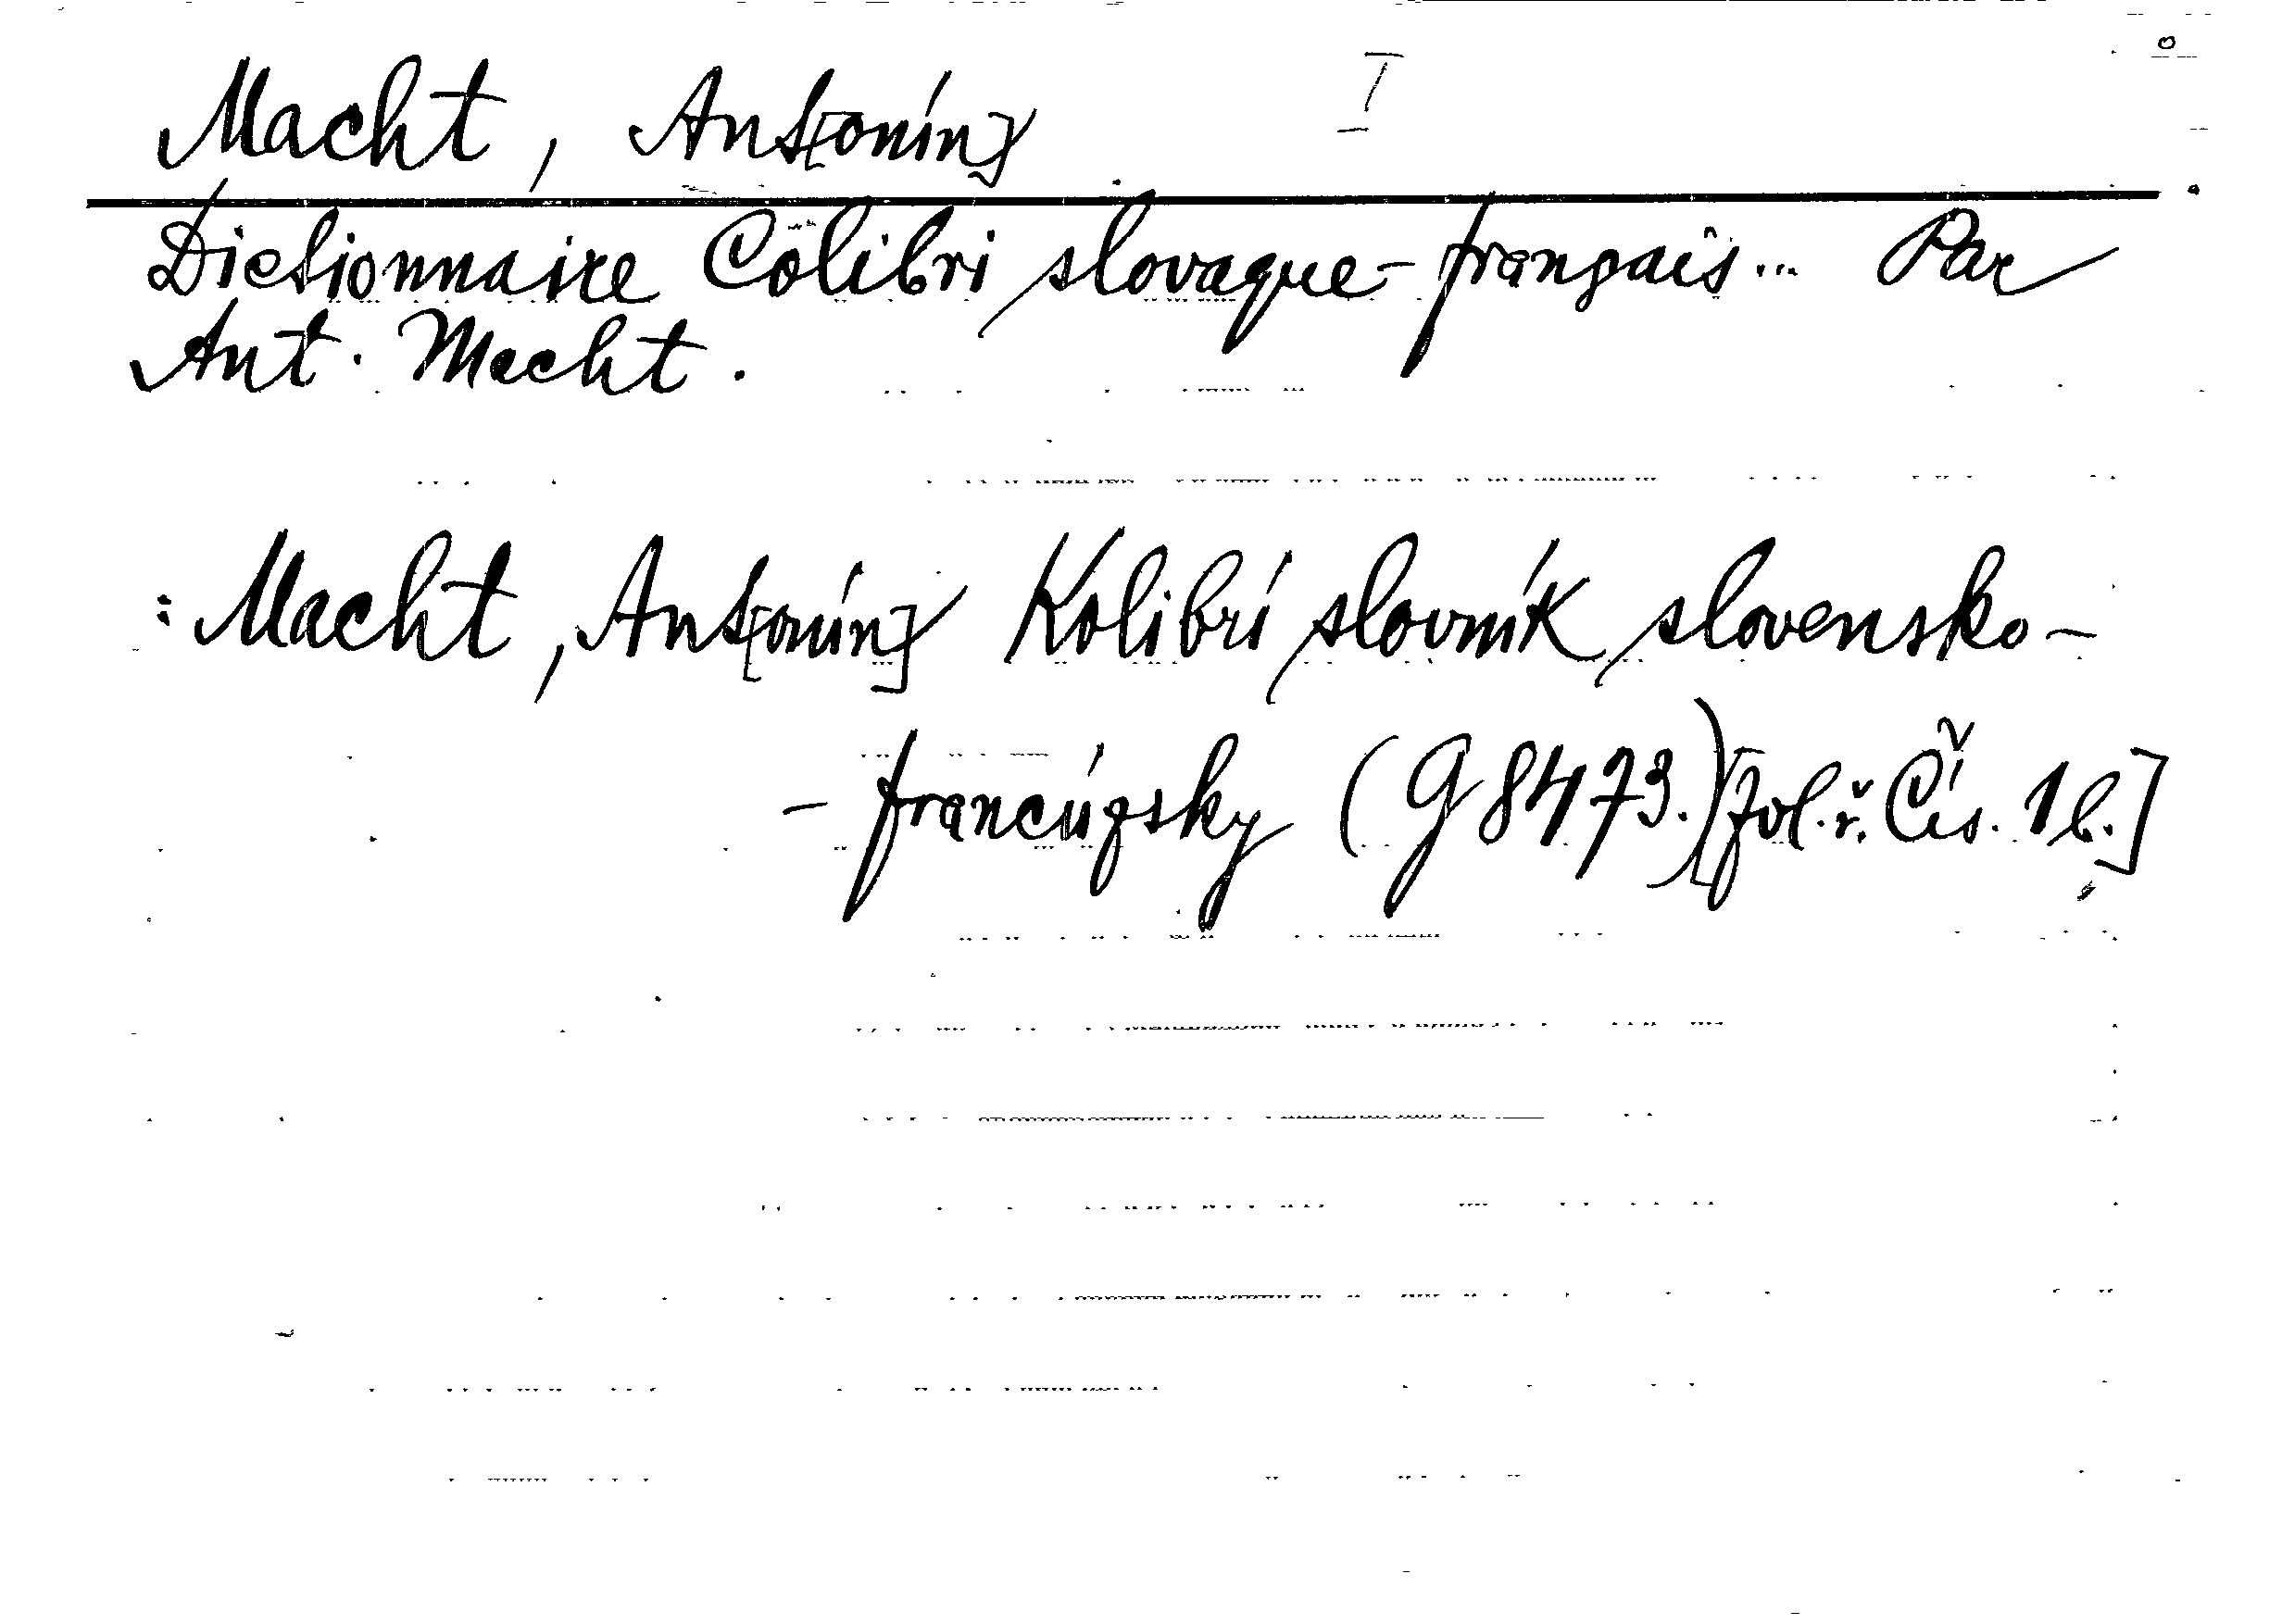 Macht, Ant[onín] I
Dictionnaire Colibri slovaque-français... Par
Ant. Macht.
: Macht, Ant[onín] Kolibrí slovník slovensko-
- francúzsky (G 8473.) [zvl. ř. Čís. 1 b.]